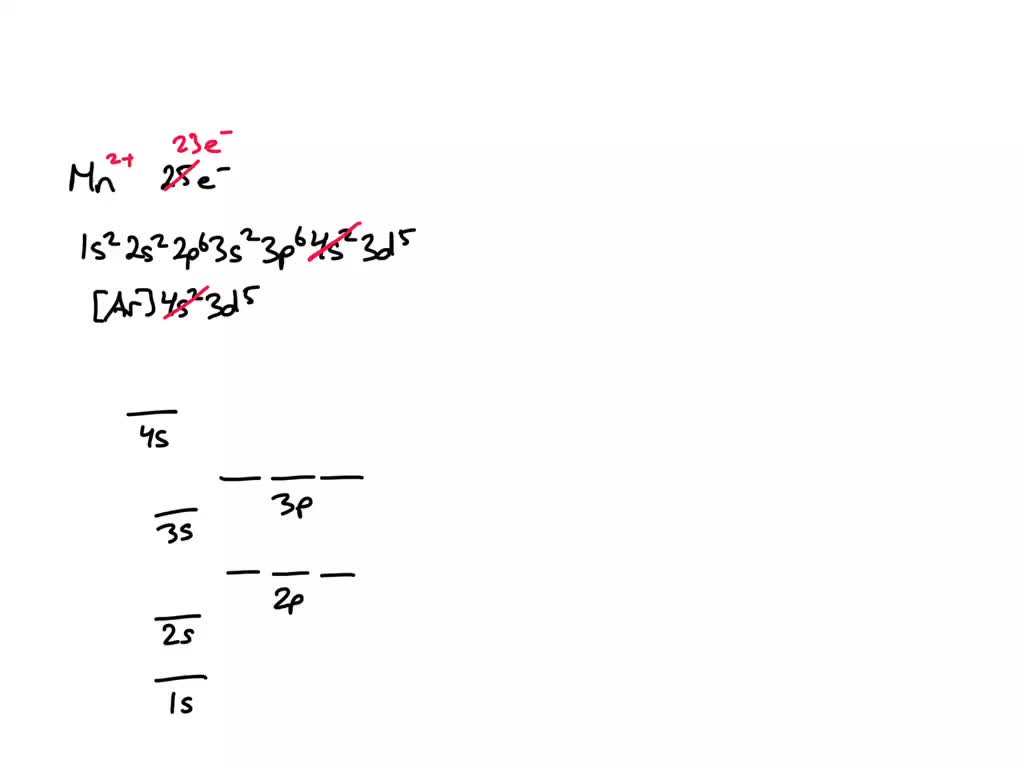 23e⁻
Mn²⁺ 25e⁻
1s² 2s² 2p⁶ 3s² 3p⁶ 4s² 3d⁵
[Ar] 4s² 3d⁵
4s
3p
3s
2p
2s
1s